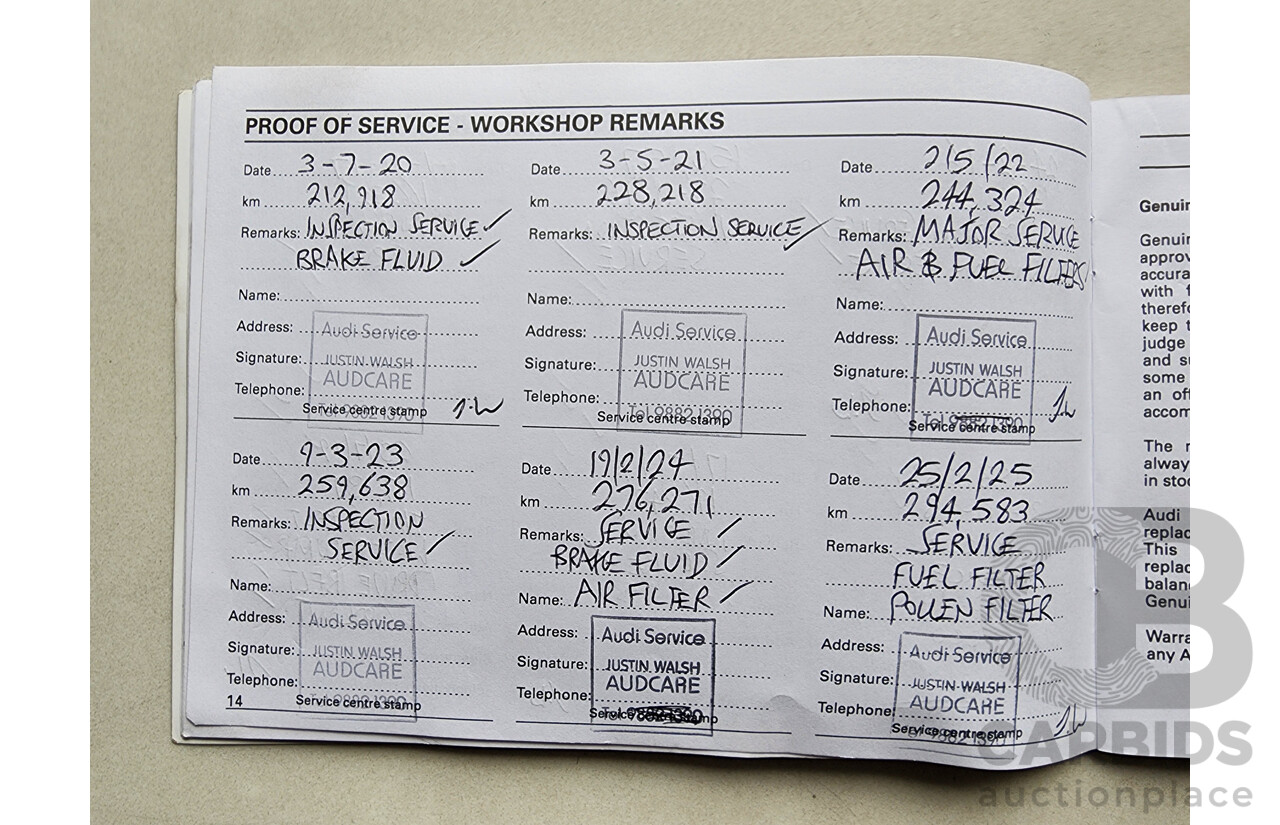 PROOF OF SERVICE - WORKSHOP REMARKS
Date 3-7-20
km 212,918
Remarks: INSPECTION SERVICE ✓
BRAKE FLUID ✓
Name:
Address:
Signature:
Telephone:
Audi Service
JUSTIN WALSH
AUDCARE
Tel 9882 1390
Service centre stamp
J.W
Date 3-5-21
km 228,218
Remarks: INSPECTION SERVICE ✓
Name:
Address:
Signature:
Telephone:
Audi Service
JUSTIN WALSH
AUDCARE
Tel 9882 1390
Service centre stamp
Date 2/5/22
km 244,324
Remarks: MAJOR SERVICE
AIR & FUEL FILTERS
Name:
Address:
Signature:
Telephone:
Audi Service
JUSTIN WALSH
AUDCARE
Tel 9882 1390
Service centre stamp
J.W
Date 9-3-23
km 259,638
Remarks: INSPECTION
SERVICE ✓
Name:
Address:
Signature:
Telephone:
Audi Service
JUSTIN WALSH
AUDCARE
Tel 9882 1390
Service centre stamp
14
Date 19/2/24
km 276,271
Remarks: SERVICE ✓
BRAKE FLUID ✓
Name: AIR FILTER ✓
Address:
Signature:
Telephone:
Audi Service
JUSTIN WALSH
AUDCARE
Tel 9882 1390
Service centre stamp
Date 25/2/25
km 294,583
Remarks: SERVICE
FUEL FILTER
Name: POLLEN FILTER
Address:
Signature:
Telephone:
Audi Service
JUSTIN WALSH
AUDCARE
Tel 9882 1390
Service centre stamp
J.W
Genuin
Genuin
approv
accura
with f
therefo
keep t
judge
and su
some
an off
accom
The n
alway
in stoc
Audi
replac
This
replac
balanc
Genui
Warra
any A
CARBIDS
auctionplace